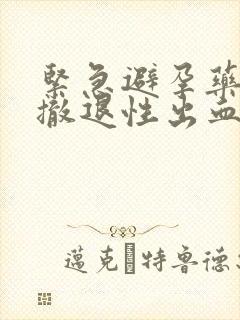 緊急避孕藥
撤退性出血
邁克·特魯德